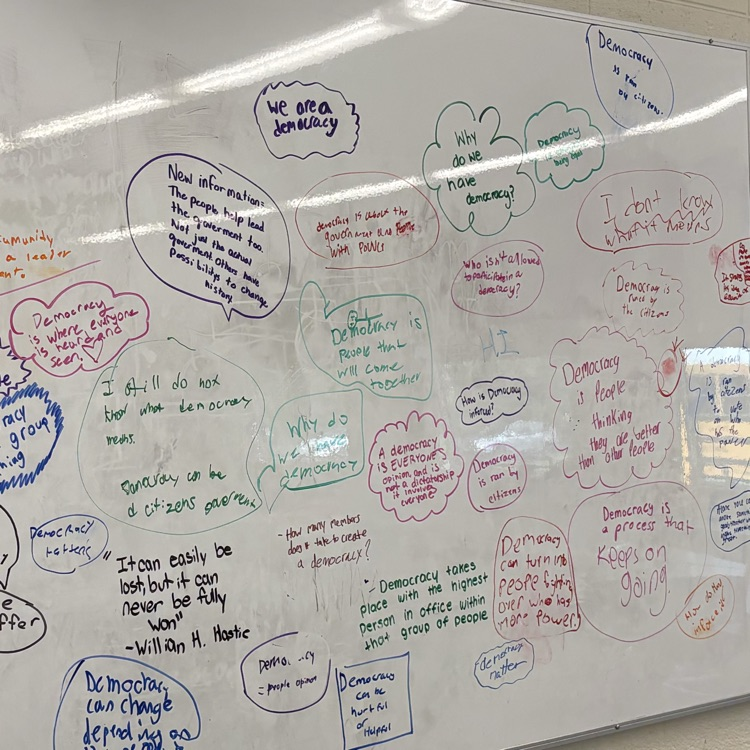 Democracy
is ran
by citizens.
we are a
democracy
Why
do we
have
democracy?
Democracy
being
New information:
The people help lead
the goverment too.
Not just the actual
goverment. Others have
possibilitys to change
history.
democracy is when the
government
with
I dont know
what it means
umunity
a leader
Who isn't allowed
to participate in a
democracy?
Democracy is
runed by
the citizens
Democracy
is where everyone
is heard and
seen.
Democracy is
people that
will come
together
HI
I still do not
know what democracy
means.
Democracy can be
a citizens goverment
Why do
we have
democracy
How is Democracy
inforced?
A democracy
is EVERYONE'S
opinion and is
not a dictatorship
it involves
everyone
Democracy
is ran by
citizens
Democracy
is People
thinking
they are better
than other people
A democracy
is ran
by citizens
to vote
on who
has the
power
racy
group
ning
Democracy
matters
"It can easily be
lost, but it can
never be fully
won"
-William H. Hastie
-How many members
does it take to create
a democracy?
- Democracy takes
place with the highest
person in office within
that group of people
Democracy
can turn into
people fighting
over who has
more power.
Democracy is
a process that
keeps on
going.
How do they
inforce it
e
ffer
Democracy
can change
depending on
Democracy
= people opinion
Democracy
can be
hurtful
or
Helpful
democracy
matter